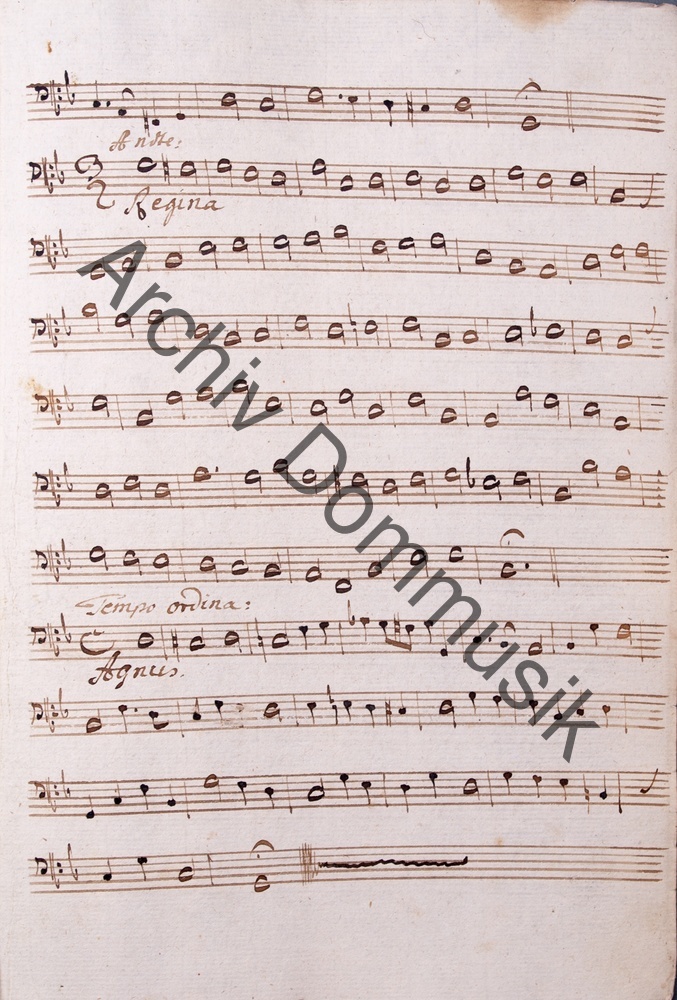 Andte:
3
2
Regina
Tempo ordina:
C
Agnus.
Archiv Dommusik